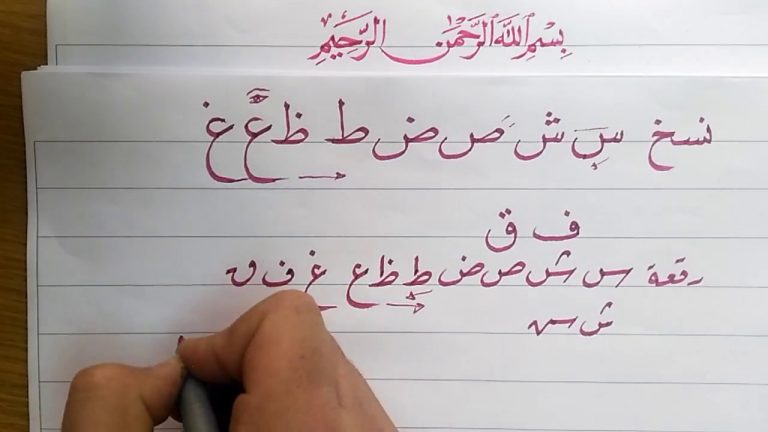 بِسْمِ اللَّهِ الرَّحْمٰنِ الرَّحِيمِ
نسخ س ش ص ض ط ظ ع غ
ف ق
رقعة س ش ص ض ط ظ ع غ ف ق
ش س